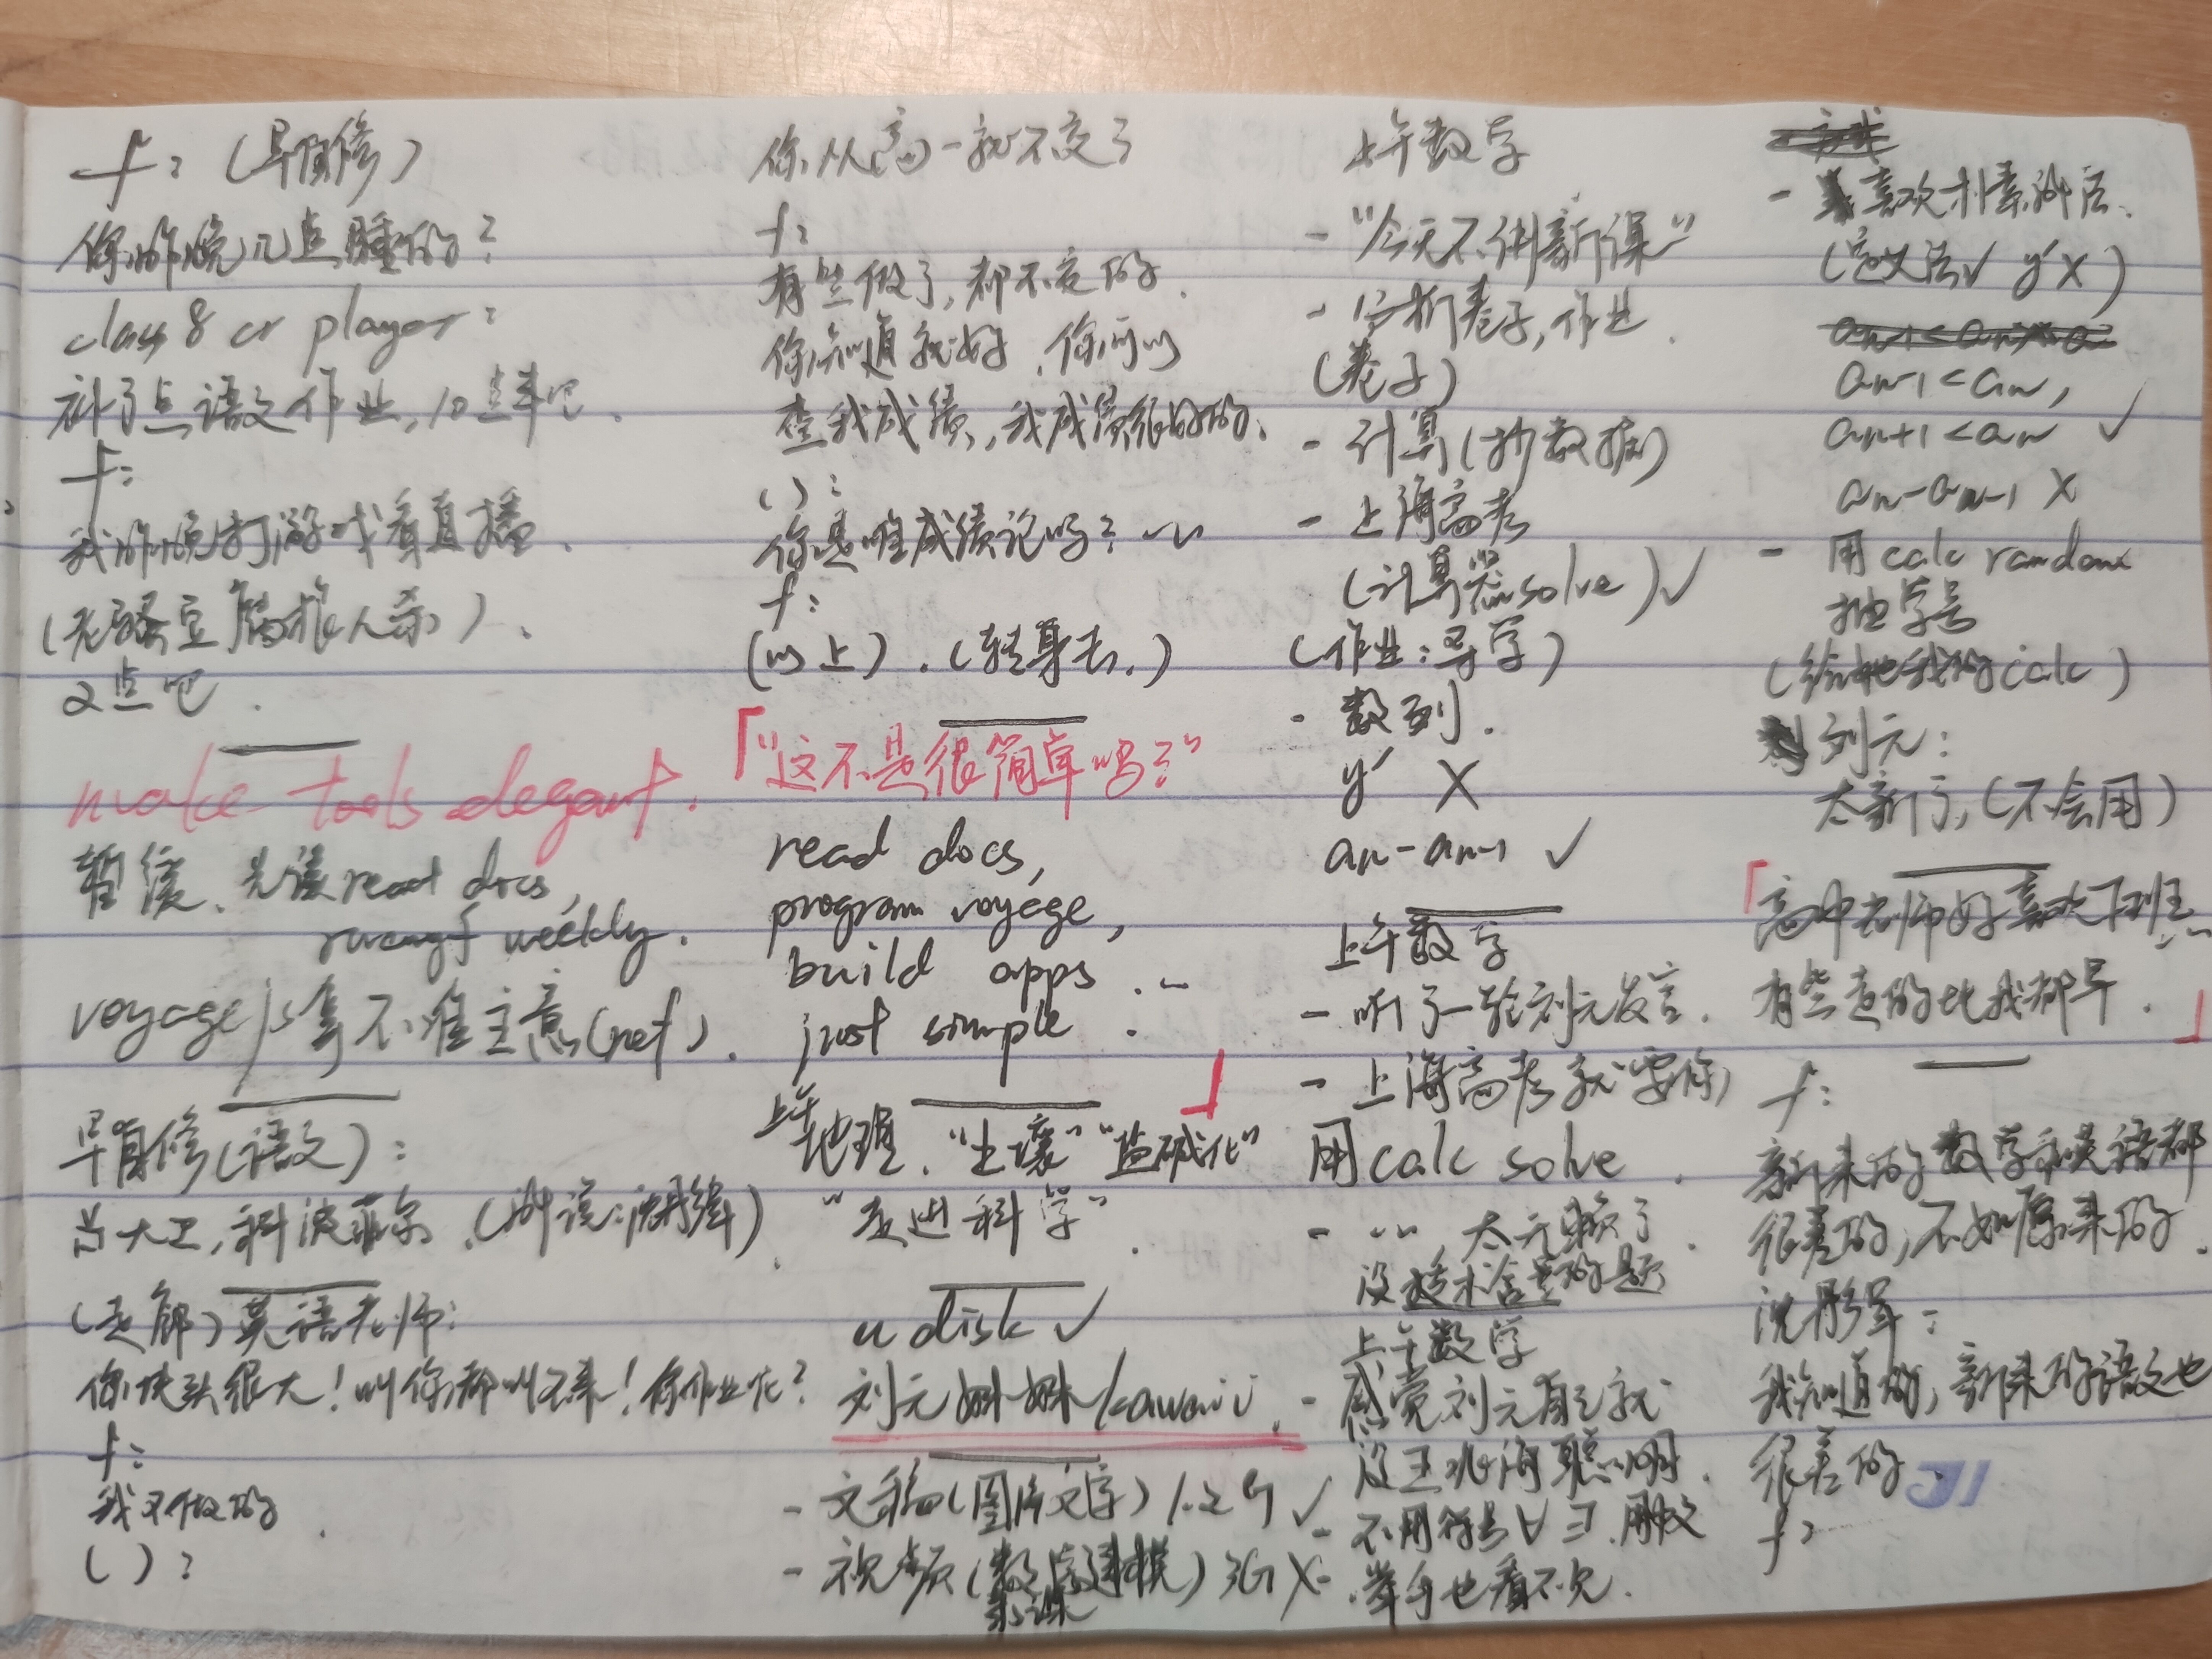 f：（早自修）
你昨晚几点睡的？
class 8 cr player：
补了点语文作业，10点半吧．
f：
我昨晚打游戏看直播．
（老骚豆腐狼人杀）．
2点吧．
make tools elegant．
暂缓、先读 read docs，
ruangf weekly．
voyage/js拿不准主意(net)．
早自修（语文）：
当大卫，科波菲尔．
（走廊）英语老师：
你块头很大！叫你都叫不来！你作业呢？
f：
我不做的．
（）：
你从高一就不交了
f：
有些做了，都不交的．
你知道就好．你可以
查我成绩，我成绩很好的．
（）：
你是唯成绩论吗？
f：
（以上）．（转身去．）
「“这不是很简单吗？”
read docs,
program voyage,
build apps ．．
just simple ．
」
上午地理．“土壤”“盐碱化”
“走进科学”．
u disk ✓
刘元姝姝kawaii．
- 文稿（图片文字）1.2G ✓
- 视频（数据建模）3G X
上午数学
- “今天不讲新课”
- 分析卷子，作业．
（卷子）
- 计算（抄数据）
- 上海高考
（计算器solve）✓
（作业：导学）
- 数列．
y′ X
an-an-1 ✓
上午数学
- 听了一轮刘元发言．
- 上海高考就要你
用calc solve．
- “”太亢赘了．
没技术含量的题
上午数学
- 感觉刘元自己就
没王兆海聪明．
- 不用符号∀∃．用文
- 举手也看不见．
- 喜欢朴素办法．
（定义法✓ y′X）
an-1<an，
an+1<an ✓
an-an-1 X
- 用calc random
抽学号
（给她我的calc）
刘元：
太新了，（不会用）
「高中老师好喜欢下班...
有些走的比我都早．」
f：
新来的数学和英语都
很差的，不如原来的．
沈彤军：
我知道的，新来的语文也
很差的．
f：